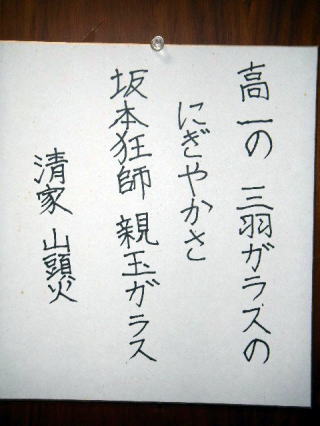 高一の 三羽ガラスの
にぎやかさ
坂本狂師 親玉ガラス
清家 山頭火